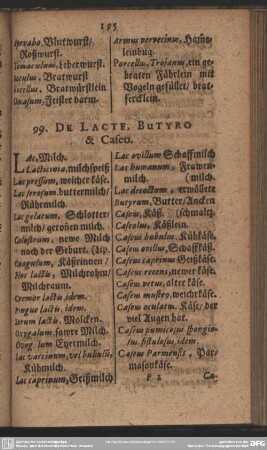 195
Apexabo, Blutwurst/
Roßwurst.
Tomaculum, Leberwurst.
Botulus, Bratwurst
Botellus, Bratwürstlein
Omasum, Feister darm.
Armus vervecinus, Hammelinbug.
Porcellus, Trojanus, ein gebraten Fährlein mit
Vogeln gefüllet/ bratfercklein.
99. DE LACTE, BUTYRO
& Caseo.
LAc, Milch.
Lacticinia, milchspeiß
Lac pressum, weicher käse.
Lac serosum, buttermilch/
Rührmilch.
Lac gelatum, Schlottermilch/ geronen milch.
Colostrum, newe Milch
nach der Geburt. (Lip.
Coagulum, Käßrennen/
Flos lactis, Milchrohm/
Milchraum.
Cremor lactis, idem.
Pingue lactis, idem.
Serum lactis, Molcken.
Oxygalum, sawre Milch.
Oxygalum Eyermilch.
Lac vaccinum, vel bubulũ,
Kühmilch.
Lac caprinum, Geißmilch
Lac ovillum Schaffmilch
Lac humanum, Frawenmilch. (milch.
Lac decoctum, erwöllete
Butyrum, Butter/Ancken
Caseus, Käß. (schmaltz.
Caseolus, Käßlein.
Caseus bubulus, Kühkäse.
Caseus ovillus, Schaffkäß.
Caseus caprinus Geißkäse.
Caseus recens, newer käse.
Caseus vetus, alter käse.
Caseus musteus, weichkäse.
Caseus oculatus. Käse/ der
viel Augen hat.
Caseus pumicosus spongiosus, fistulosus, idem.
Caseus Parmensis, Parmasonkäse.
p 2
Ca-